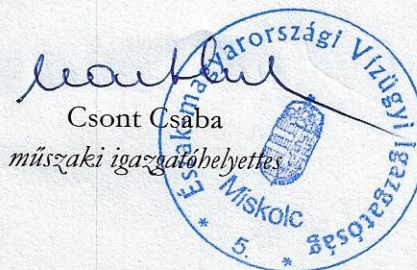 Csont Csaba
műszaki igazgatóhelyettes
Északmagyarországi Vízügyi Igazgatóság
Miskolc
* 5. *